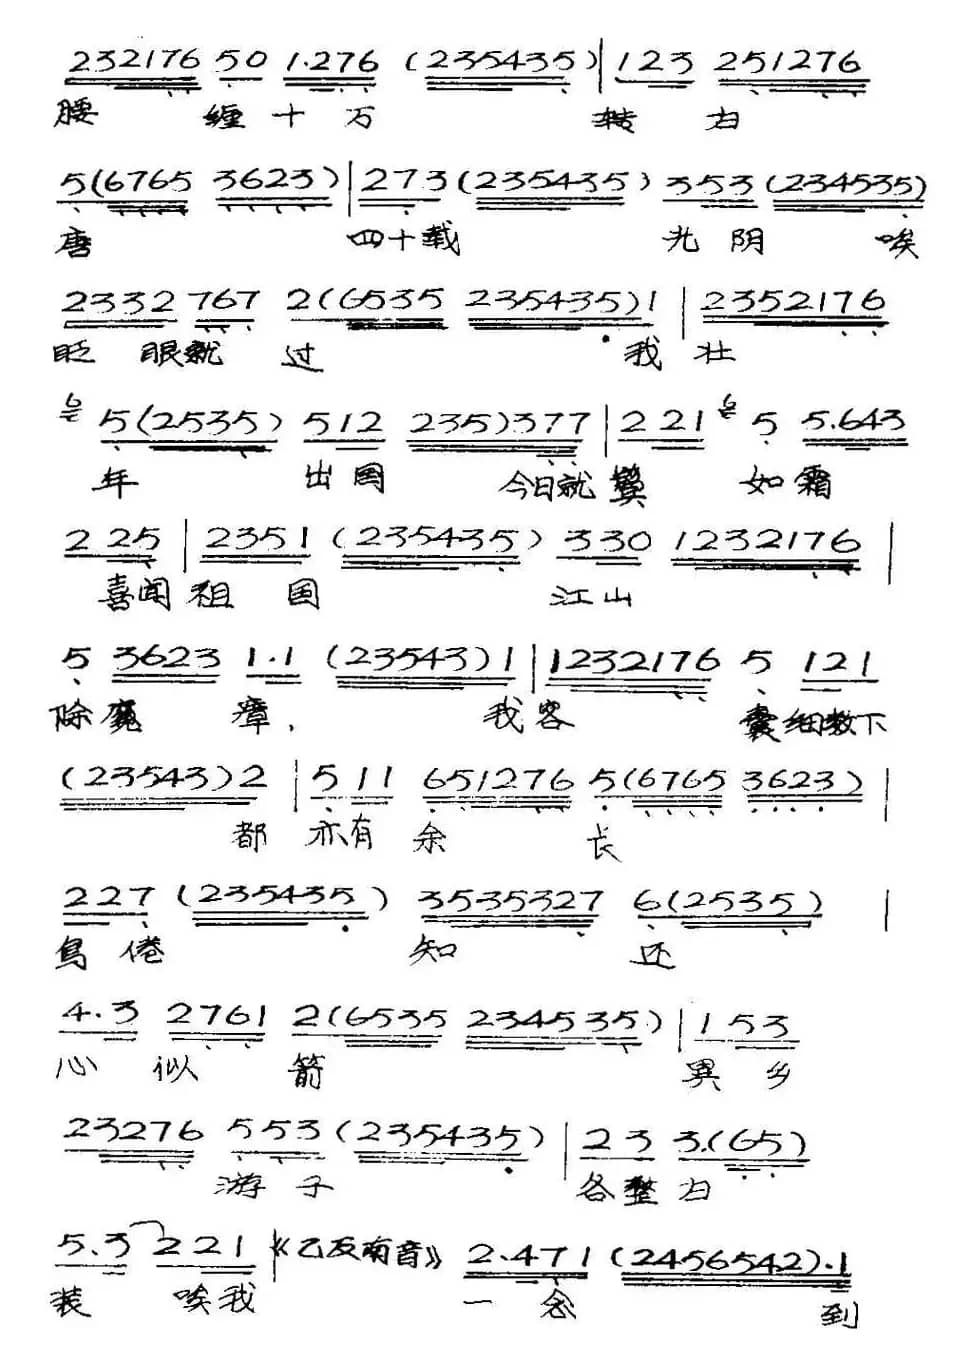 232176 50 1.276 (235435) | 123 251276
腰 缠 十 万 转 归
5(6765 3623) | 273 (235435) 353 (234535)
唐 四十载 光 阴 唉
2332 767 2(6535 235435)1 | 2352176
眨 眼就 过 我 壮
5(2535) 512 235)377 | 2 21 5 5.643
年 出国 今日就鬓 如霜
2 25 | 2351 (235435) 330 1232176 |
喜闻祖 国 江山
5 3623 1.1 (23543)1 | 1232176 5 121
除魔 瘴, 我客 囊细数下
(23543)2 | 5 11 651276 5(6765 3623) |
都 亦有 余 长
227 (235435) 3535327 6(2535) |
鸟倦 知 还
4.3 2761 2(6535 234535) | 1 53
心 似 箭 異 乡
23276 553 (235435) | 23 3.(65)
游 子 各整归
5.3 221 |《乙反南音》 2.471 (2456542).1
装 唉我 一 念 到